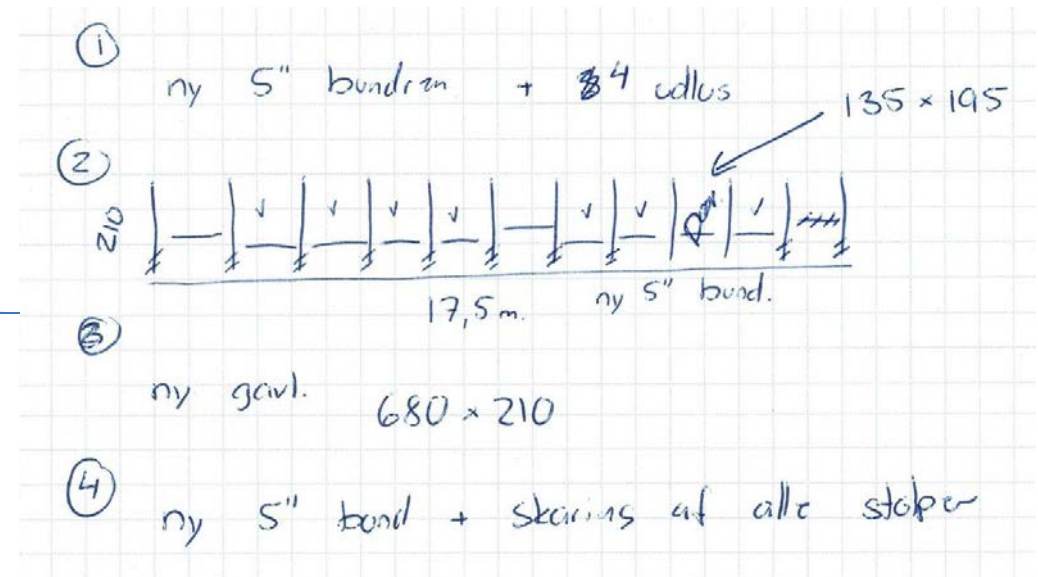 ①
ny 5" bundrem + 4 udlus
135 × 195
②
210
Dør
17,5 m. ny 5" bund.
③
ny gavl. 680 × 210
④
ny 5" bund + skaring af alle stolper